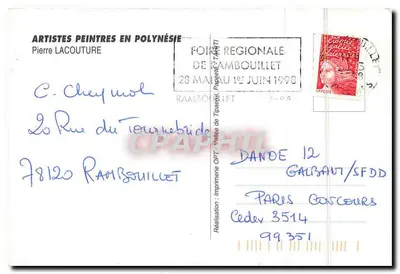 ARTISTES PEINTRES EN POLYNÉSIE
Pierre LACOUTURE
FOIRE REGIONALE
DE RAMBOUILLET
28 MAI AU 1er JUIN 1998
RAMBOUILLET
C. Cheymol
20 Rue du Tournebride
78120 RAMBOUILLET
Réalisation : Imprimerie OPT - Vallée de Tipaerui, Papeete TAHITI
DANOE 12
GALBANI/SFDD
PARIS CONCOURS
Cedex 3514
99351